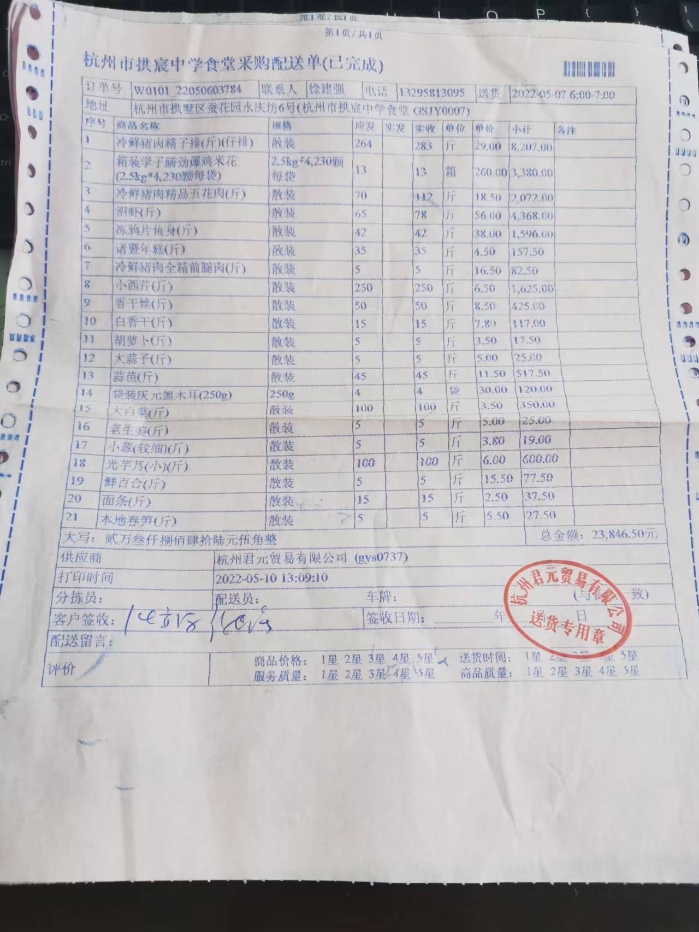 第1页/共1页
第1页/共1页
杭州市拱宸中学食堂采购配送单(已完成)
订单号 W0101_22050603784 联系人 徐建强 电话 13295813095 送货 2022-05-07 6:00-7:00
地址 杭州市拱墅区蚕花园永庆坊6号(杭州市拱宸中学食堂 GSJY0007)
序号 商品名称 规格 应发 实发 实收 单位 单价 小计 备注
1 冷鲜猪肉精子排(斤)(仔排) 散装 264 283 斤 29.00 8,207.00
2 箱装学子腩劲爆鸡米花(2.5kg*4,230颗每袋) 2.5kg*4,230颗每袋 13 13 箱 260.00 3,380.00
3 冷鲜猪肉精品五花肉(斤) 散装 70 112 斤 18.50 2,072.00
4 沼虾(斤) 散装 65 78 斤 56.00 4,368.00
5 冻鸦片鱼身(斤) 散装 42 42 斤 38.00 1,596.00
6 诸暨年糕(斤) 散装 35 35 斤 4.50 157.50
7 冷鲜猪肉全精前腿肉(斤) 散装 5 5 斤 16.50 82.50
8 小西芹(斤) 散装 250 250 斤 6.50 1,625.00
9 香干丝(斤) 散装 50 50 斤 8.50 425.00
10 白香干(斤) 散装 15 15 斤 7.80 117.00
11 胡萝卜(斤) 散装 5 5 斤 3.50 17.50
12 大蒜子(斤) 散装 5 5 斤 5.00 25.00
13 蒜苗(斤) 散装 45 45 斤 11.50 517.50
14 袋装庆元黑木耳(250g) 250g 4 4 袋 30.00 120.00
15 大白菜(斤) 散装 100 100 斤 3.50 350.00
16 老生姜(斤) 散装 5 5 斤 5.00 25.00
17 小葱(较细)(斤) 散装 5 5 斤 3.80 19.00
18 光芋艿(小)(斤) 散装 100 100 斤 6.00 600.00
19 鲜百合(斤) 散装 5 5 斤 15.50 77.50
20 面条(斤) 散装 15 15 斤 2.50 37.50
21 本地春笋(斤) 散装 5 5 斤 5.50 27.50
大写：贰万叁仟捌佰肆拾陆元伍角整 总金额：23,846.50元
供应商 杭州君元贸易有限公司 (gys0737)
打印时间 2022-05-10 13:09:10
分拣员： 配送员： 车牌： (与 致)
客户签收： 签收日期： 年 日
杭州君元贸易有限公司
送货专用章
配送留言：
评价 商品价格： 1星 2星 3星 4星 5星 送货时间： 1星 2星 5星
服务质量： 1星 2星 3星 4星 5星 商品质量： 1星 2星 3星 4星 5星